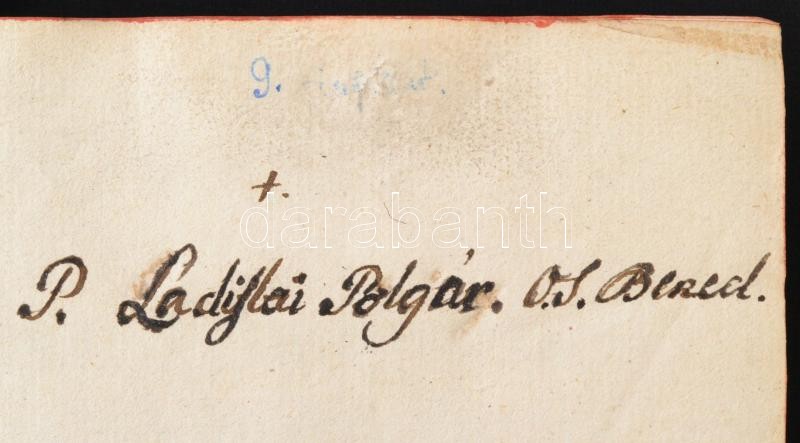 9.
+.
darabanth
P. Ladiſlai Polgár. O.S. Bened.